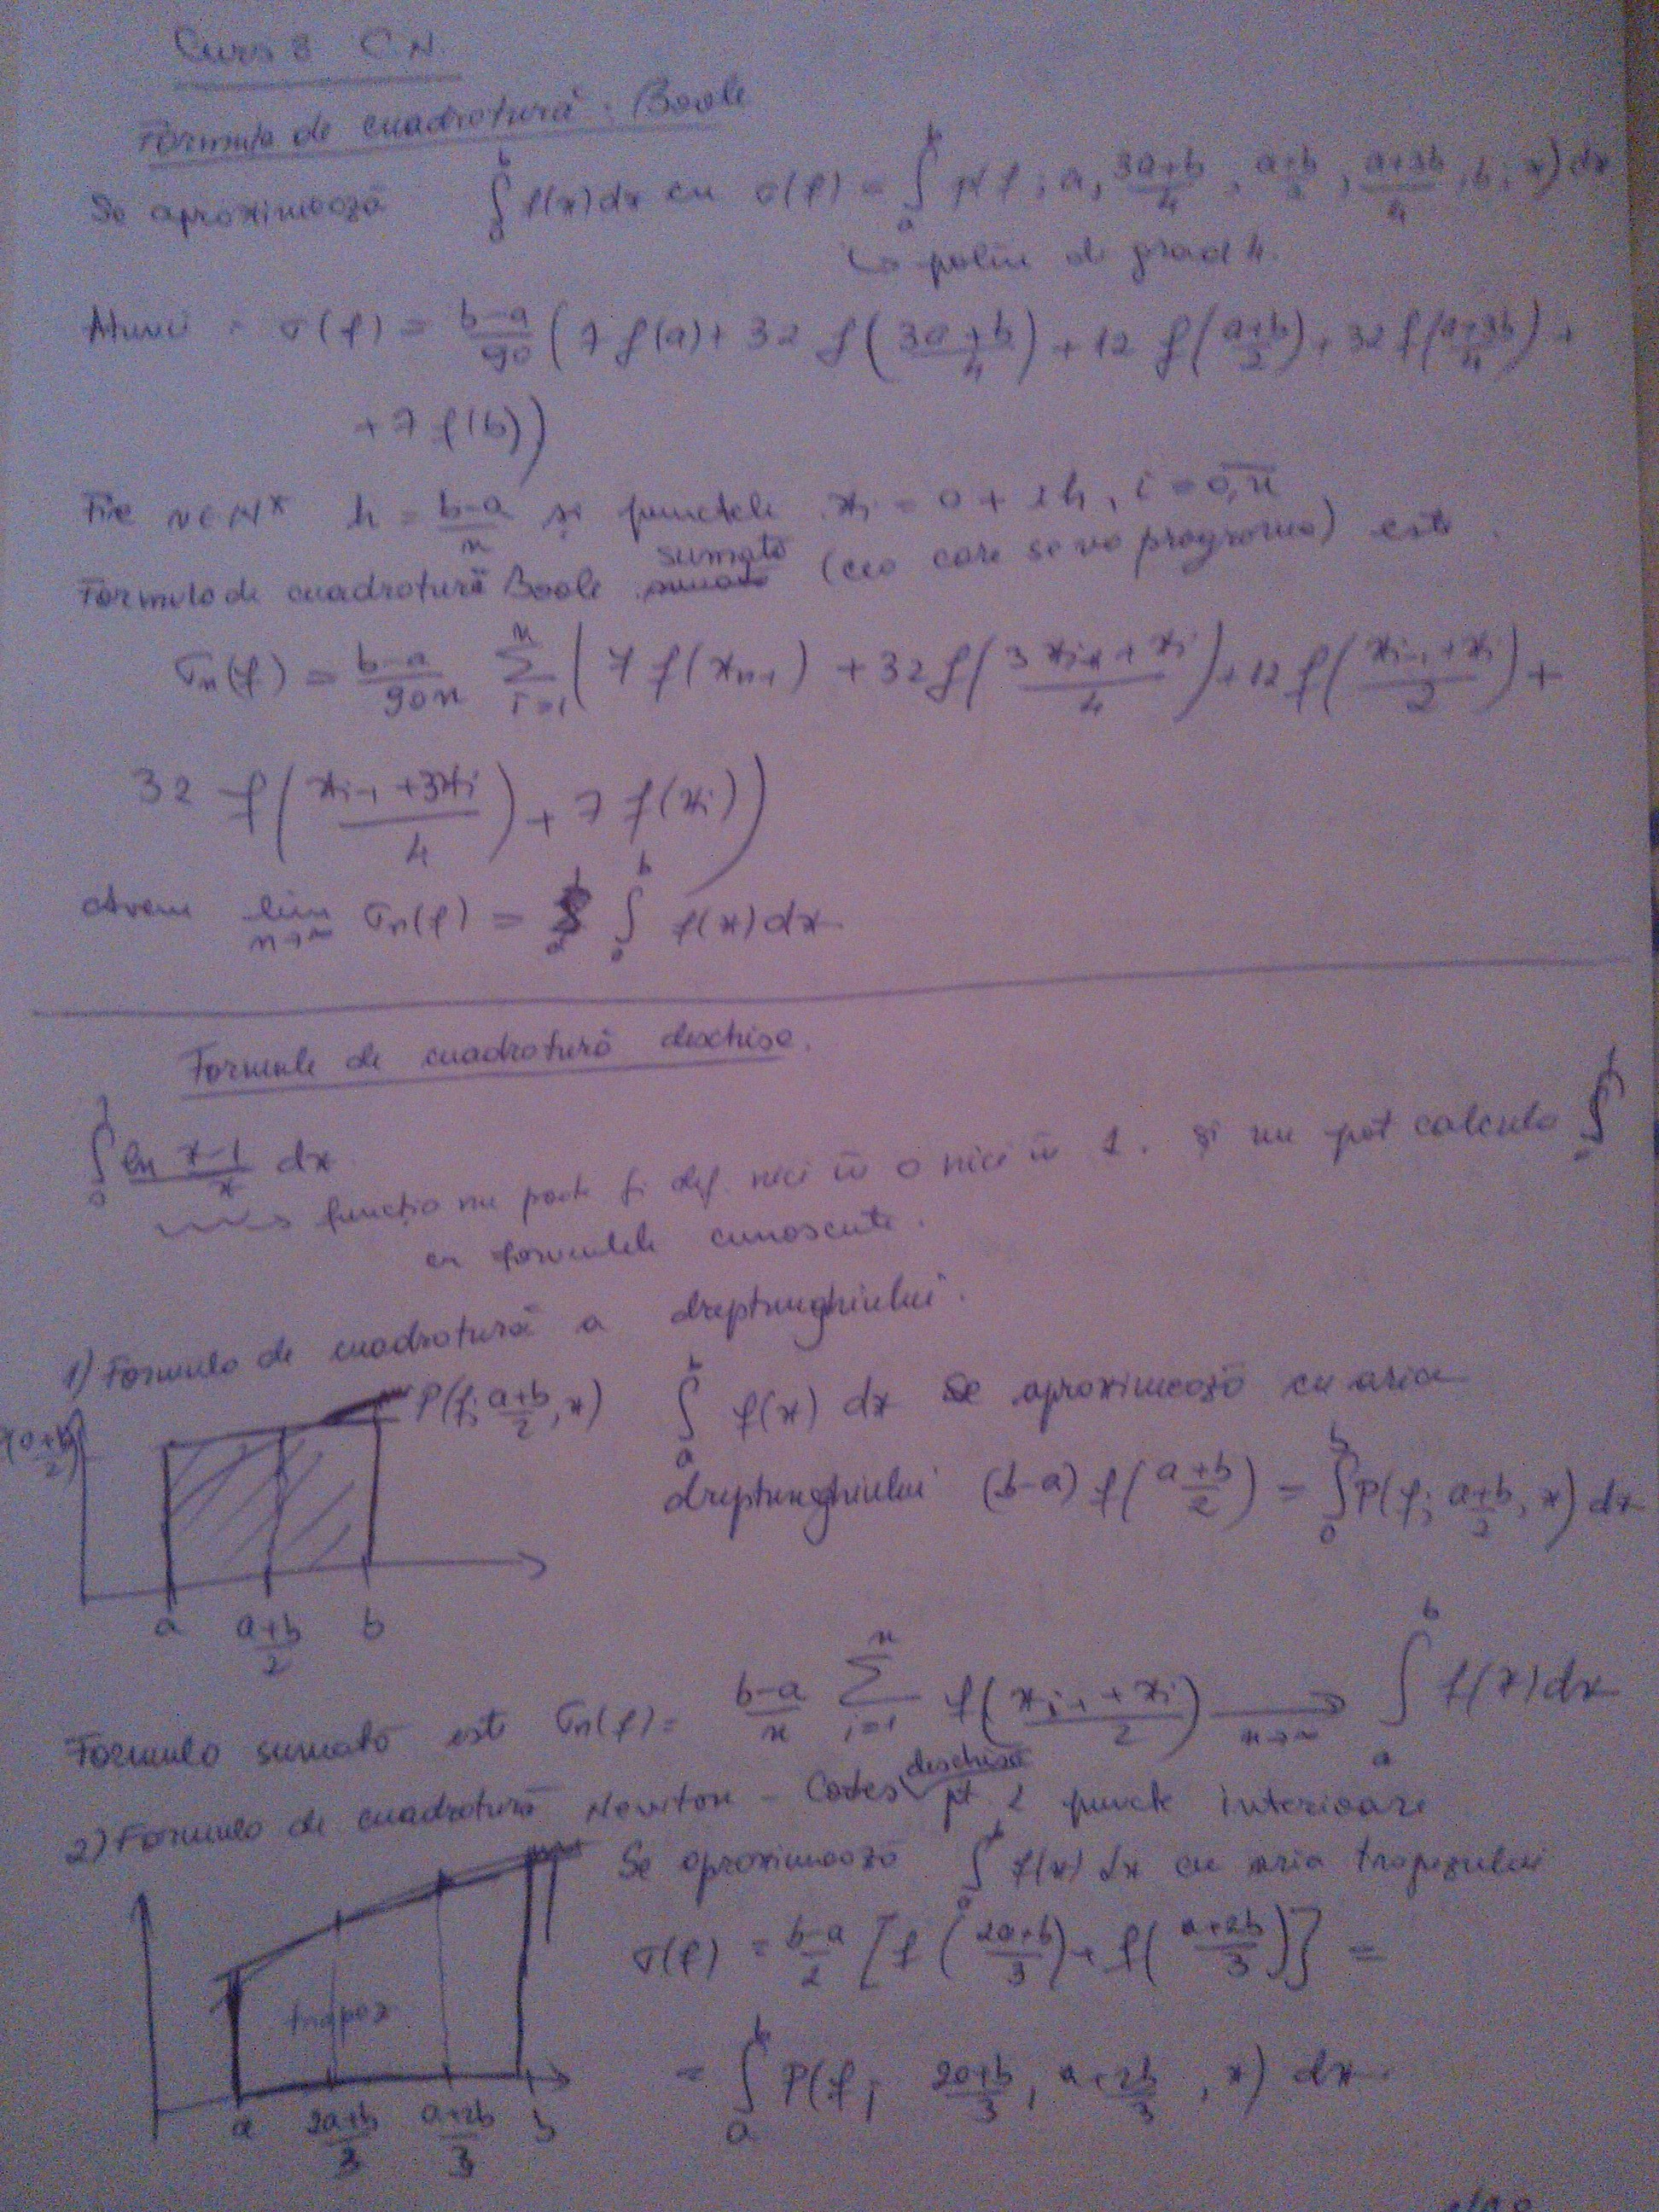 Curs 8 C.N.
Formula de cuadratură Boole
Se aproximează ∫_a^b f(x)dx cu σ(f) = ∫_a^b P(f; a, (3a+b)/4, (a+b)/2, (a+3b)/4, b; x) dx
↳ polin de grad 4.
Atunci σ(f) = (b-a)/90 (7 f(a) + 32 f((3a+b)/4) + 12 f((a+b)/2) + 32 f((a+3b)/4) +
+ 7 f(b))
Fie n∈N* h = (b-a)/n și punctele xi = a + ih, i = 0,n
Formula de cuadratură Boole sumată (cea care se va programa) este
σn(f) = (b-a)/90n ∑_{i=1}^n (7 f(xn-1) + 32 f((3xi-1 + xi)/4) + 12 f((xi-1 + xi)/2) +
32 f((xi-1 + 3xi)/4) + 7 f(xi))
Avem lim_{n→∞} σn(f) = ∫_a^b f(x)dx
Formule de cuadratură deschise.
∫_0^1 ln (x-1)/x dx
funcția nu poate fi def. nici în 0 nici în 1. și nu pot calcula ∫
cu formulele cunoscute.
1) Formula de cuadratură a dreptunghiului.
P(f; (a+b)/2, x) ∫_a^b f(x) dx se aproximează cu aria
f((a+b)/2)
dreptunghiului (b-a) f((a+b)/2) = ∫_a^b P(f; (a+b)/2, x) dx
a (a+b)/2 b
Formula sumată este σn(f) = (b-a)/n ∑_{i=1}^n f((xi-1 + xi)/2) →_{n→∞} ∫_a^b f(x)dx
2) Formula de cuadratură Newton - Cotes deschisă pt 2 puncte interioare
Se aproximează ∫_a^b f(x) dx cu aria trapezului
σ(f) = (b-a)/2 [f((2a+b)/3) + f((a+2b)/3)] =
trapez
= ∫_a^b P(f; (2a+b)/3, (a+2b)/3, x) dx.
a (2a+b)/3 (a+2b)/3 b